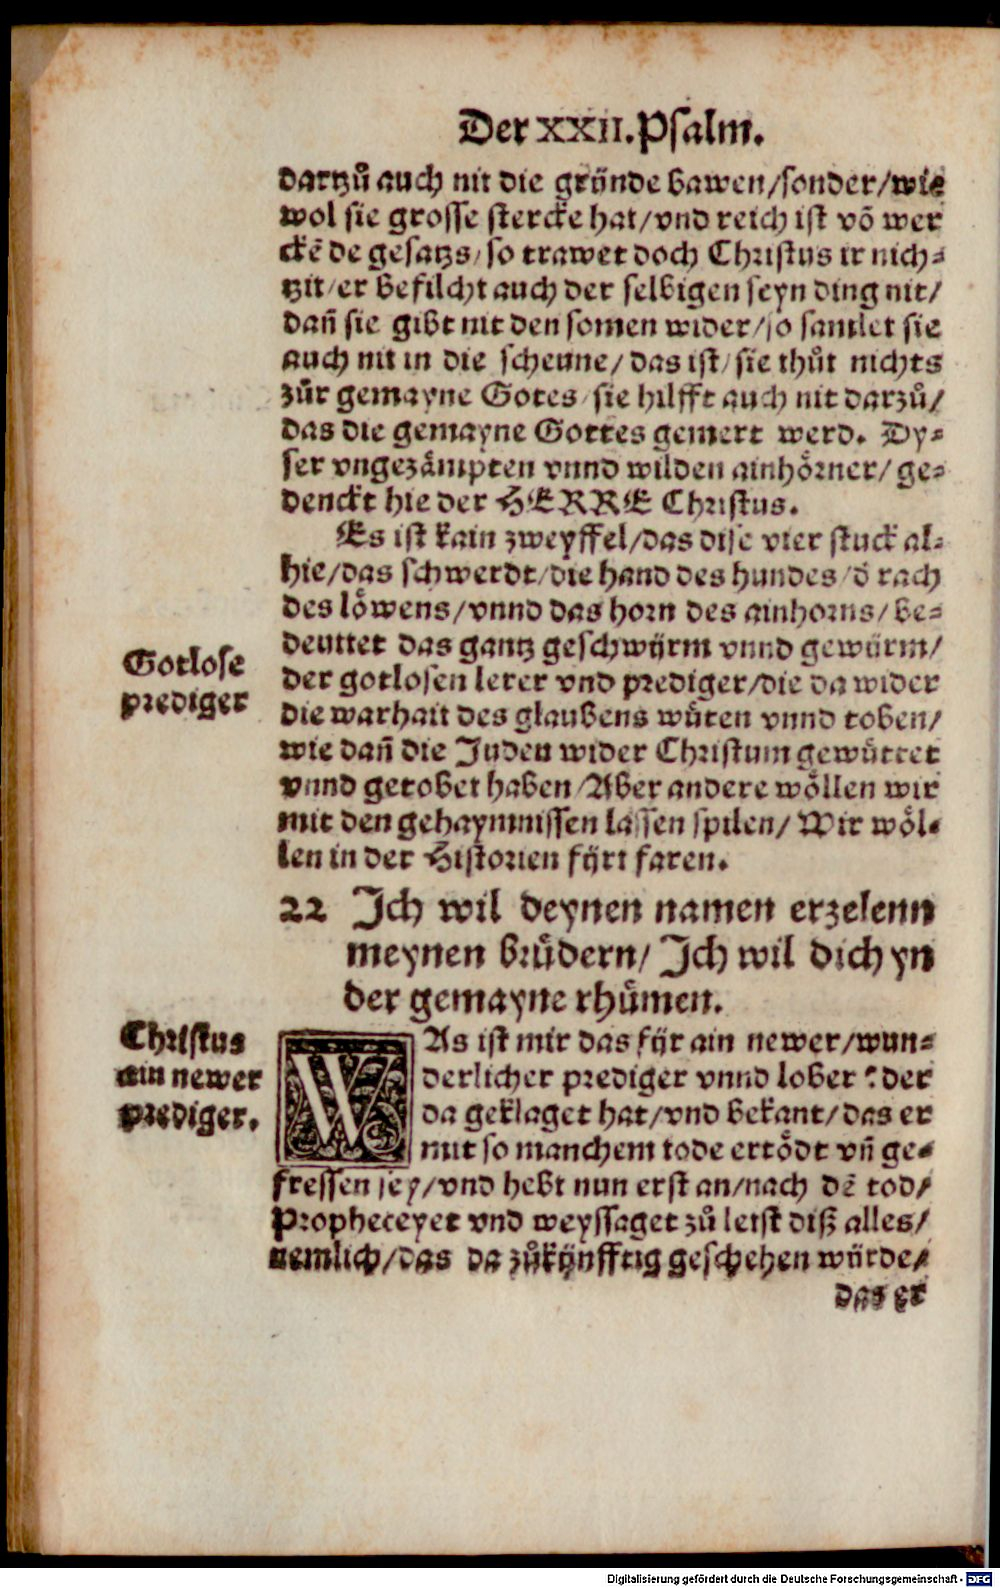 Der XXII. Psalm.
dartzů auch nit die gründe bawen/sonder/wie
wol sie grosse stercke hat/vnd reich ist võ wer
ckẽ de gesatzs/so trawet doch Christus ir nich-
tzit/er befilcht auch der selbigen seyn ding nit/
dañ sie gibt nit den somen wider/so samlet sie
auch nit in die scheune/das ist/sie thůt nichts
zůr gemayne Gotes/sie hilfft auch nit darzů/
das die gemayne Gottes gemert werd. Dy-
ser vngezåmpten vnnd wilden ainhörner/ge-
denckt hie der HERRE Christus.
Es ist kain zweyffel/das dise vier stuck al-
hie/das schwerdt/die hand des hundes/d̄ rach
des löwens/vnnd das horn des ainhorns/be-
deuttet das gantz geschwürm vnnd gewürm/
Gotlose
prediger
der gotlosen lerer vnd prediger/die da wider
die warhait des glaubens wůten vnnd toben/
wie dañ die Juden wider Christum gewůttet
vnnd getobet haben/Aber andere wöllen wir
mit den gehaymnissen lassen spilen/Wir wöl-
len in der Historien fürt faren.
22 Ich wil deynen namen erzelenn
meynen brůdern/Ich wil dich yn
der gemayne rhůmen.
Christus
ain newer
prediger.
WAs ist mir das für ain newer/wun-
derlicher prediger vnnd lober? der
da geklaget hat/vnd bekant/das er
mit so manchem tode ertödt vñ ge-
fressen sey/vnd hebt nun erst an/nach dẽ tod/
Propheceyet vnd weyssaget zů letst diß alles/
nemlich/das da zůkünfftig geschehen würde/
das er
Digitalisierung gefördert durch die Deutsche Forschungsgemeinschaft - DFG